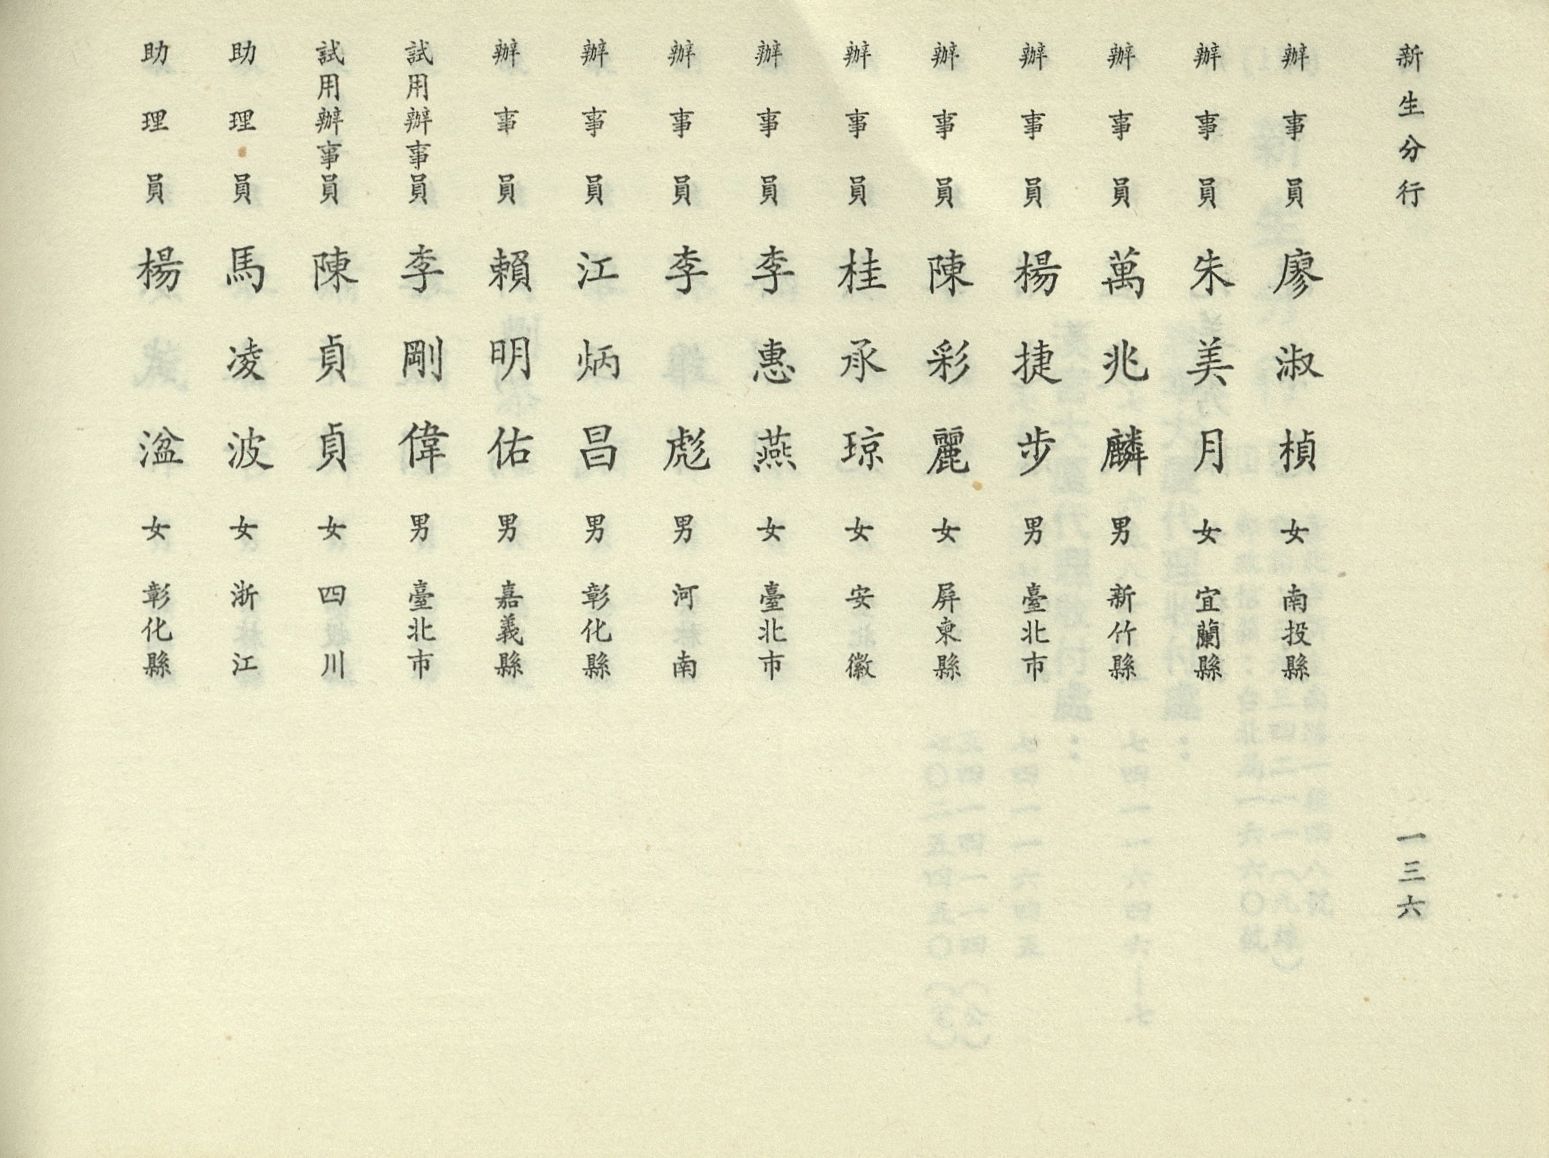 新生分行 一三六
辦事員 廖淑楨 女 南投縣
辦事員 朱美月 女 宜蘭縣
辦事員 萬兆麟 男 新竹縣
辦事員 楊捷步 男 臺北市
辦事員 陳彩麗 女 屏東縣
辦事員 桂承琼 女 安徽
辦事員 李惠燕 女 臺北市
辦事員 李彪 男 河南
辦事員 江炳昌 男 彰化縣
辦事員 賴明佑 男 嘉義縣
試用辦事員 李剛偉 男 臺北市
試用辦事員 陳貞貞 女 四川
助理員 馬凌波 女 浙江
助理員 楊湓 女 彰化縣